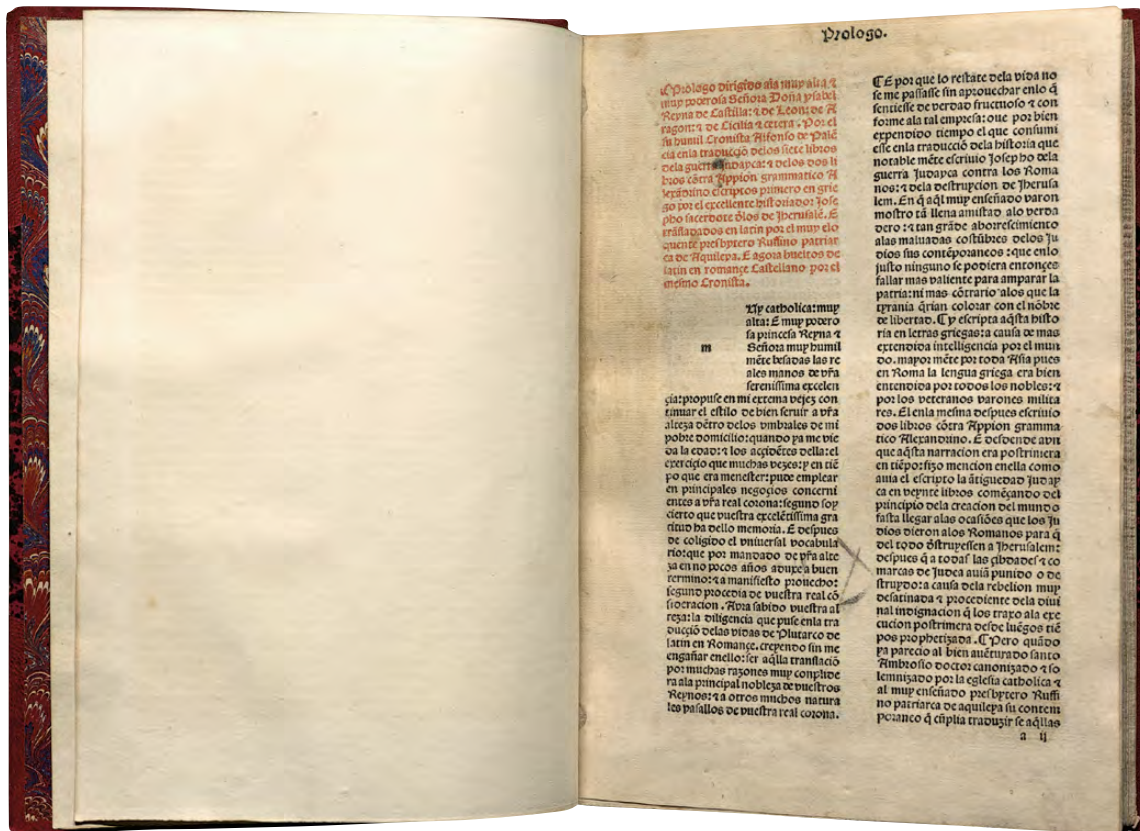 Prologo.
¶ Prólogo dirigido ala muy alta ⁊
muy poderosa Señora Doña ysabel
Reyna de Castilla: ⁊ de Leon: de A
ragon: ⁊ de Cicilia ⁊ cetera. Por el
su humil Cronista Alfonso de Palē
cia enla traducciō delos siete libros
dela guerra Iudayca: ⁊ delos dos li
bros cōtra Appion grammatico A
lexādrino escriptos primero en grie
go por el excellente historiador Jose
pho sacerdote d̄los de Jherusalē. E
trāsladados en latin por el muy elo
quente presbytero Ruffino patriar
ca de Aquileya. E agora bueltos de
latin en romançe Castellano por el
mesmo Cronista.
m
Uy catholica: muy
alta: E muy podero
sa princesa Reyna ⁊
Señora muy humil
mēte besadas las re
ales manos de vr̄a
serenissima excelen
çia: propuse en mi extrema vejez con
tinuar el estilo de bien seruir a vr̄a
alteza dētro delos vmbrales de mi
pobre domicilio: quando ya me vie
da la edad: ⁊ los acçidētes della: el
exerçiçio que muchas vezes: y en tiē
po que era menester: pude emplear
en principales negoçios concerni
entes a vr̄a real corona: segund soy
cierto que vuestra excelētissima gra
titud ha dello memoria. E despues
de coligido el vniuersal vocabula
rio: que por mandado de vr̄a alte
za en no pocos años aduxe a buen
termino: ⁊ a manifiesto prouecho:
segund procedia de vuestra real cō
sideracion. Aura sabido vuestra al
teza: la diligencia que puse enla tra
ducciō delas vidas de Plutarco de
latin en Romançe. creyendo sin me
engañar enello: ser aq̄lla translaciō
por muchas razones muy conplide
ra ala principal nobleza de vuestros
Reynos: ⁊ a otros muchos natura
les vasallos de vuestra real corona.
¶ E por que lo restāte dela vida no
se me passasse sin aprouechar enlo q̄
sentiesse de verdad fructuoso ⁊ con
forme ala tal empresa: oue por bien
expendido tiempo el que consumi
esse enla traducciō dela historia que
notable mēte escriuio Josepho dela
guerra Judayca contra los Roma
nos: ⁊ dela destruycion de Jherusa
lem. En q̄ aq̄l muy enseñado varon
mostro tā llena amistad alo verda
dero: ⁊ tan grāde aborrescimiento
alas maluadas costūbres delos Ju
dios sus contēporaneos: que enlo
justo ninguno se podiera entonçes
fallar mas valiente para amparar la
patria: ni mas cōtrario alos que la
tyrania q̄rian colorar con el nōbre
de libertad. ¶ Y escripta aq̄sta histo
ria en letras griegas: a causa de mas
extendida intelligencia por el mun
do. mayor mēte por toda Asia pues
en Roma la lengua griega era bien
entendida por todos los nobles: ⁊
por los veteranos varones milita
res. El enla mesma despues escriuio
dos libros cōtra Appion gramma
tico Alexandrino. E desdende avn
que aq̄sta narracion era postrimera
en tiēpo: fizo mencion enella como
auia el escripto la ātiguedad Juday
ca en veynte libros comēçando del
principio dela creacion del mundo
fasta llegar alas ocasiōes que los Ju
dios dieron alos Romanos para q̄
del todo d̄struyessen a Jherusalem:
despues q̄ a todas las çibdades ⁊ co
marcas de Judea auiā punido o de
struydo: a causa dela rebelion muy
desatinada ⁊ procediente dela diui
nal indignacion q̄ los traxo ala exe
cucion postrimera desde luēgos tiē
pos prophetizada. ¶ Pero quādo
ya parecio al bien auēturado santo
Ambrosio doctor canonizado ⁊ so
lemnizado por la eglesia catholica ⁊
al muy enseñado presbytero Ruffi
no patriarca de aquileya su contem
poraneo q̄ cūplia traduzir se aq̄llas
a ij